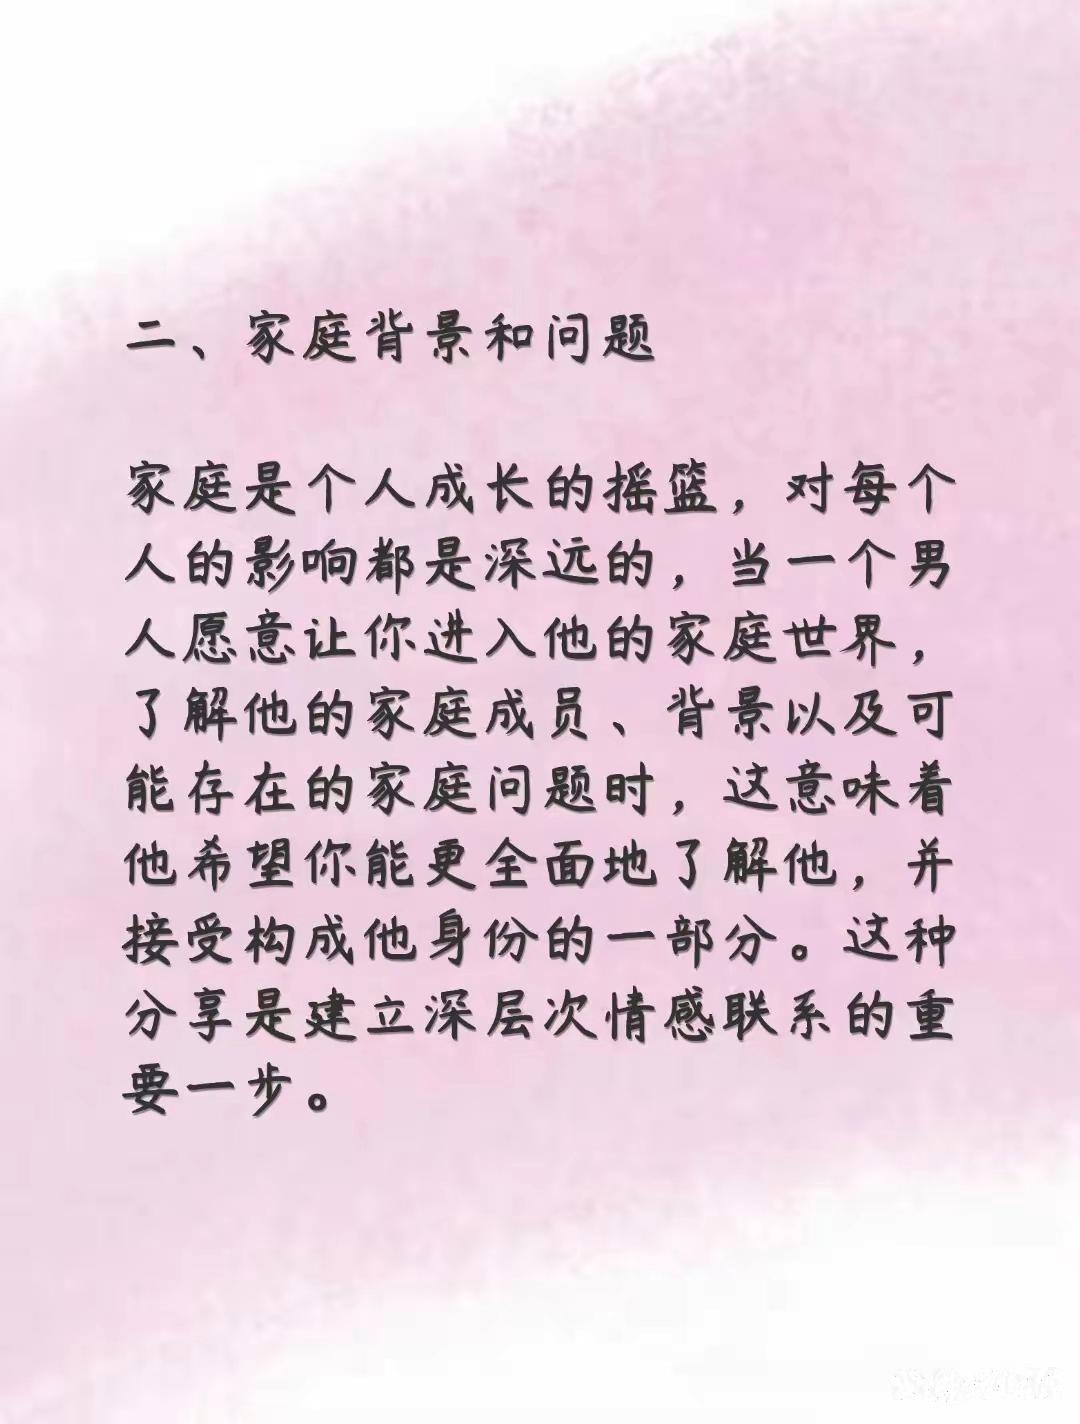 二、家庭背景和问题
家庭是个人成长的摇篮，对每个
人的影响都是深远的，当一个男
人愿意让你进入他的家庭世界，
了解他的家庭成员、背景以及可
能存在的家庭问题时，这意味着
他希望你能更全面地了解他，并
接受构成他身份的一部分。这种
分享是建立深层次情感联系的重
要一步。